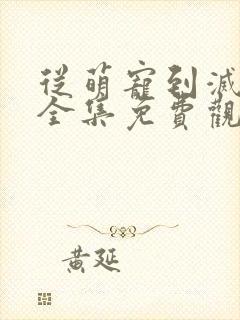 從萌寵到滅
全集免費觀
黃延